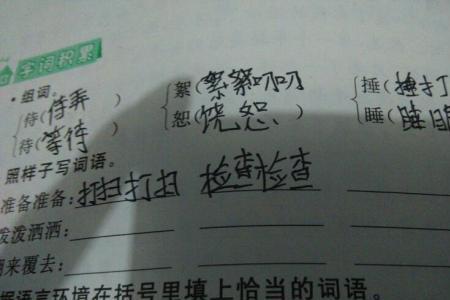 字词积累
·组词。
侍(侍弄) 絮(絮絮叨叨) 捶(捶打
待(等待) 恕(饶恕) 睡(睡眠
照样子写词语。
准备准备:打扫打扫 检查检查
泼泼洒洒:
来覆去:
据语言环境在括号里填上恰当的词语。